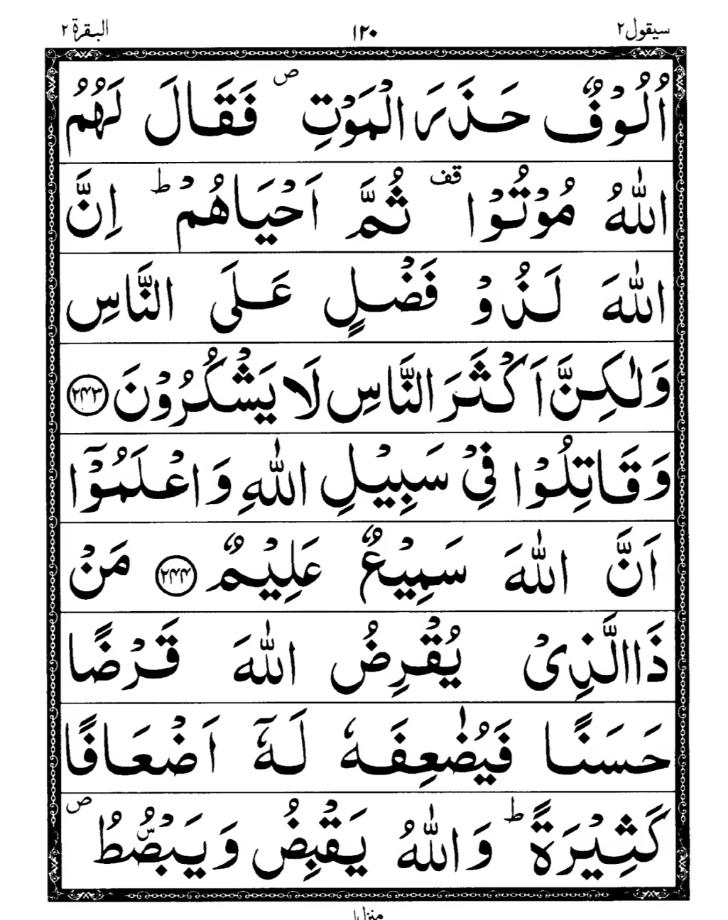 سيقول ٢ ١٢٠ البقرة ٢
اُلُوۡفٌ حَذَرَ الۡمَوۡتِ ۖ فَقَالَ لَهُمُ
اللّٰهُ مُوۡتُوۡا ۟ ثُمَّ اَحۡيَاهُمۡ ؕ اِنَّ
اللّٰهَ لَذُوۡ فَضۡلٍ عَلَى النَّاسِ
وَلٰكِنَّ اَكۡثَرَ النَّاسِ لَا يَشۡكُرُوۡنَ ﴿۲۴۳﴾
وَقَاتِلُوۡا فِىۡ سَبِيۡلِ اللّٰهِ وَاعۡلَمُوۡٓا
اَنَّ اللّٰهَ سَمِيۡعٌ عَلِيۡمٌ ﴿۲۴۴﴾ مَنۡ
ذَا الَّذِىۡ يُقۡرِضُ اللّٰهَ قَرۡضًا
حَسَنًا فَيُضٰعِفَهٗ لَهٗٓ اَضۡعَافًا
كَثِيۡرَةً ؕ وَاللّٰهُ يَقۡبِضُ وَيَبۡصُۜطُ ۖ
منزل ١